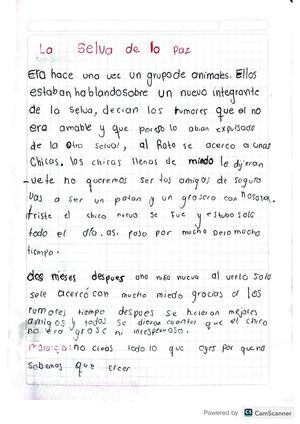 La Selva de la paz
Era hace una vez un grupo de animales. Ellos
estaban hablando sobre un nuevo integrante
de la selva, decian los rumores que el no
era amable y que por eso lo abian expulsado
de la otra selva, al Rato se acerco a unas
Chicas. los chicas llenas de miedo le dijeran
-vete no queremos ser tus amigas de seguro
vas a ser un patan y un grosero con nosotras.
triste el chico nuevo se fue y estubo solo
todo el día. asi paso por mucho pero mucho
tiempo.
dos meses despues una niña nueva al verlo solo
se le acercó con mucho miedo gracias a los
rumores tiempo despues se hicieron mejores
amigos y todos se dieron cuenta que el chico
no era grose ni irespetuoso.
moraleja: no creas todo lo que oyes por que no
Sabemos que creer
Powered by CS CamScanner